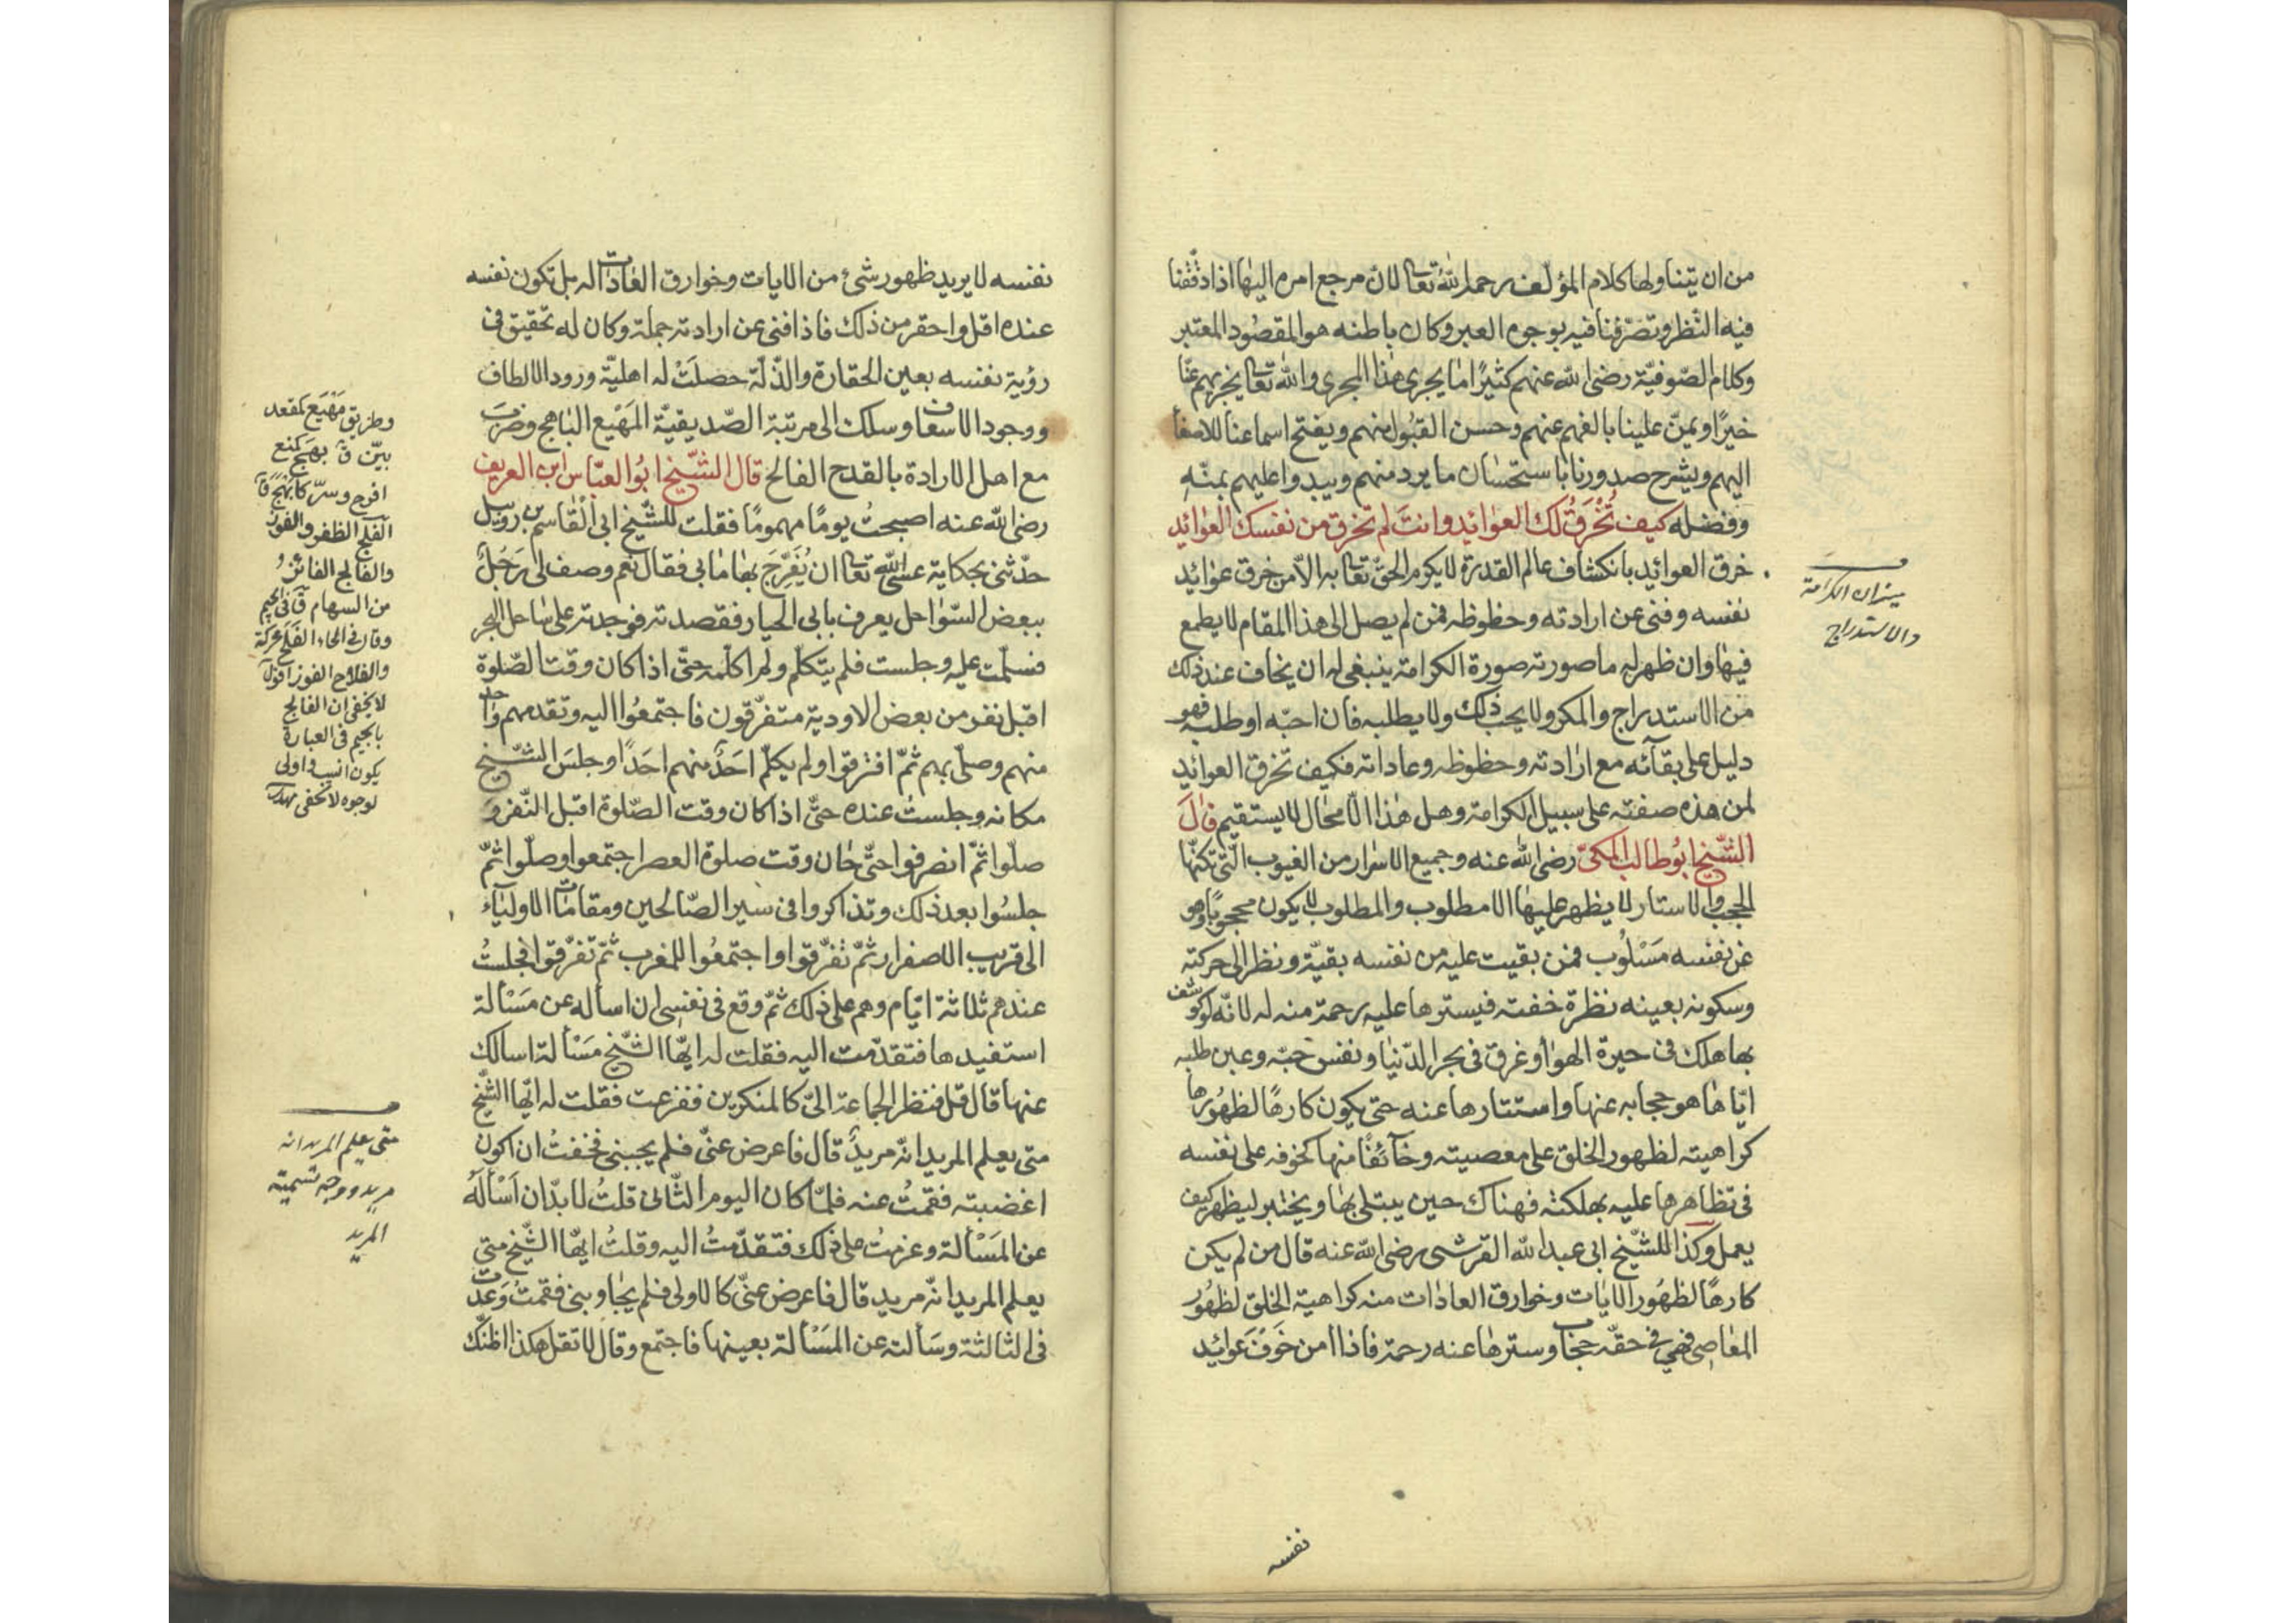 من ان يتناولها كلام المؤلف رحمه الله تعا لان مرجع امره اليها اذا دققنا
فيه النظر وتصرفنا فيه بوجوه العبر وكان باطنه هو المقصود المعتبر
وكلام الصوفية رضى الله عنهم كثيرًا ما يجرى هذا المجرى والله تعا يجزيهم عنا
خيرًا ويمنّ علينا بالفهم عنهم وحسن القبول منهم ويفتح اسماعنا للاصغا
اليهم ويشرح صدورنا باستحسان ما يرد منهم ويبدوا عليهم بمنّه
وفضله كيف تُخْرَقُ لك العوائد وانتَ لم تخرق من نفسك العوائد
خرق العوائد بانكشاف عالم القدرة لا يكرم الحقّ تعا به الّا من خرق عوائد
نفسه وفنى عن ارادته وحظوظه فمن لم يصل الى هذا المقام لا يطمع
فيها وان ظهر له ما صورته صورة الكرامة ينبغى له ان يخاف عند ذلك
من الاستدراج والمكر ولا يحب ذلك ولا يطلبه فان احبّه او طلبه فهو
دليل على بقآئه مع ارادته وحظوظه وعاداته فكيف تخرق العوائد
لمن هذه صفته على سبيل الكرامة وهل هذا الّا محال لا يستقيم قال
الشّيخ ابو طالب المكىّ رضى الله عنه وجميع الاسرار من الغيوب الّتى تكنّها
الحجب والاستار لا يظهر عليها الا مطلوب والمطلوب لا يكون محجوبًا وهو
عن نفسه مَسْلُوب فمن بقيت عليه من نفسه بقيّة ونظر الى حركته
وسكونه بعينه نظرة خفت فيسترها عليه رحمة منه له لانّه لو كوشف
بها هلك فى حيرة الهوا وغرق فى بحر الدّنيا ونفس حبّه وعين طلبه
ايّاها هو حجابه عنها واستتارها عنه حتى يكون كارهًا لظهورها
كراهيته لظهور الخلق على معصيته وخآئفًا منها كخوفه على نفسه
فى تظاهرها عليه بهلكته فهناك حين يبتلى بها ويختبر ليظهر كيف
يعمل وكذا للشّيخ ابى عبد الله القرشى رضى الله عنه قال من لم يكن
كارهًا لظهور الايات وخوارق العادات منه كراهية الخلق لظهور
المعاصى فهى فى حقّه حجاب وسترها عنه رحمة فاذا من خَرَقَ عوائد
نفسه
ميزان الكرامة
والاستدراج
نفسه لا يريد ظهور شئ من الايات وخوارق العادات له بل تكون نفسه
عنده اقل واحقر من ذلك فاذا فنى عن ارادته جملة وكان له تحقيق فى
رؤية نفسه بعين الحقارة والذّلّة حصلَتْ له اهليّة ورود الالطاف
ووجود الاسعاف وسلك الى مرتبة الصّديقيّة المَهْيَع الناهج وضرب
مع اهل الارادة بالقدح الفالح قال الشّيخ ابو العبّاس ابن العريف
رضى الله عنه اصبحتُ يومًا مهمومًا فقلت للشّيخ ابى القاسم بن روبيل
حدّثنى بحكاية عسى الله تعا ان يُفَرِّجَ بها ما بى فقال نعم وصف لى رَجُلٌ
ببعض السّواحل يعرف بابى الحيار فقصدته فوجدته على ساحل البحر
فسلّمت عليه وجلست فلم يتكلّم ولم اكلّمه حتّى اذا كان وقت الصّلوة
اقبل نفر من بعض الاودية متفرّقون فاجتمعُوا اليه وتقدمهم واحد
منهم وصلّى بهم ثمّ افترقوا ولم يكلّم احَدٌ منهم احَدًا وجلسَ الشّيخ
مكانه وجلستُ عنده حتّى اذا كان وقت الصّلوة اقبل النّفر وَ
صلّوا ثمّ انصرفوا حتّى حان وقت صلوة العصر اجتمعوا وصلّوا ثمّ
جلسُوا بعد ذلك وتذاكروا فى سير الصّالحين ومقامات الاوليآء
الى قريب الاصفرار ثمّ تفرّقوا واجتمعُوا للمغرب ثمّ تفرّقوا فجلستُ
عندهم ثلاثة ايّام وهم على ذلك ثمّ وقع فى نفسى ان اساله عن مَسْألة
استفيدها فتقدّمت اليه فقلت له ايّها الشّيخ مَسْألة اسالك
عنها قال قل فنظر الجماعة الىّ كالمنكرين ففزعت فقلت له ايّها الشّيخ
متى يعلم المريد انّه مريدٌ قال فاعرض عنّى فلم يجبنى فخفتُ ان اكون
اغضبته فقمتُ عنه فلمّا كان اليوم الثّانى قلتُ لا بدّ ان اَسْألَه
عن المَسْألة وعزمتُ على ذلك فتقدّمتُ اليه وقلتُ ايّها الشّيخ متى
يعلم المريد انّه مريد قال فاعرض عنّى كالاولى فلم يجاوبنى فقمتُ وعدت
فى الثالثة وسَألته عن المَسْألة بعينها فاجتمع وقال لا تقل هكذا اظنّك
وطريق مَهْيَع كمقعد
بيّن ق نهَج كمنع
الفلج الظفر والفوز
والفالج الفائز
من السهام ق فى الجيم
وقال فى الحاء الفَلَح محركة
والفلاح الفوز اقول
لا يخفى ان الفالج
بالجيم فى العبارة
يكون انسب واولى
لوجوه لا تخفى
متى يعلم المريد انه
مريد ووجه تسمية
المريد